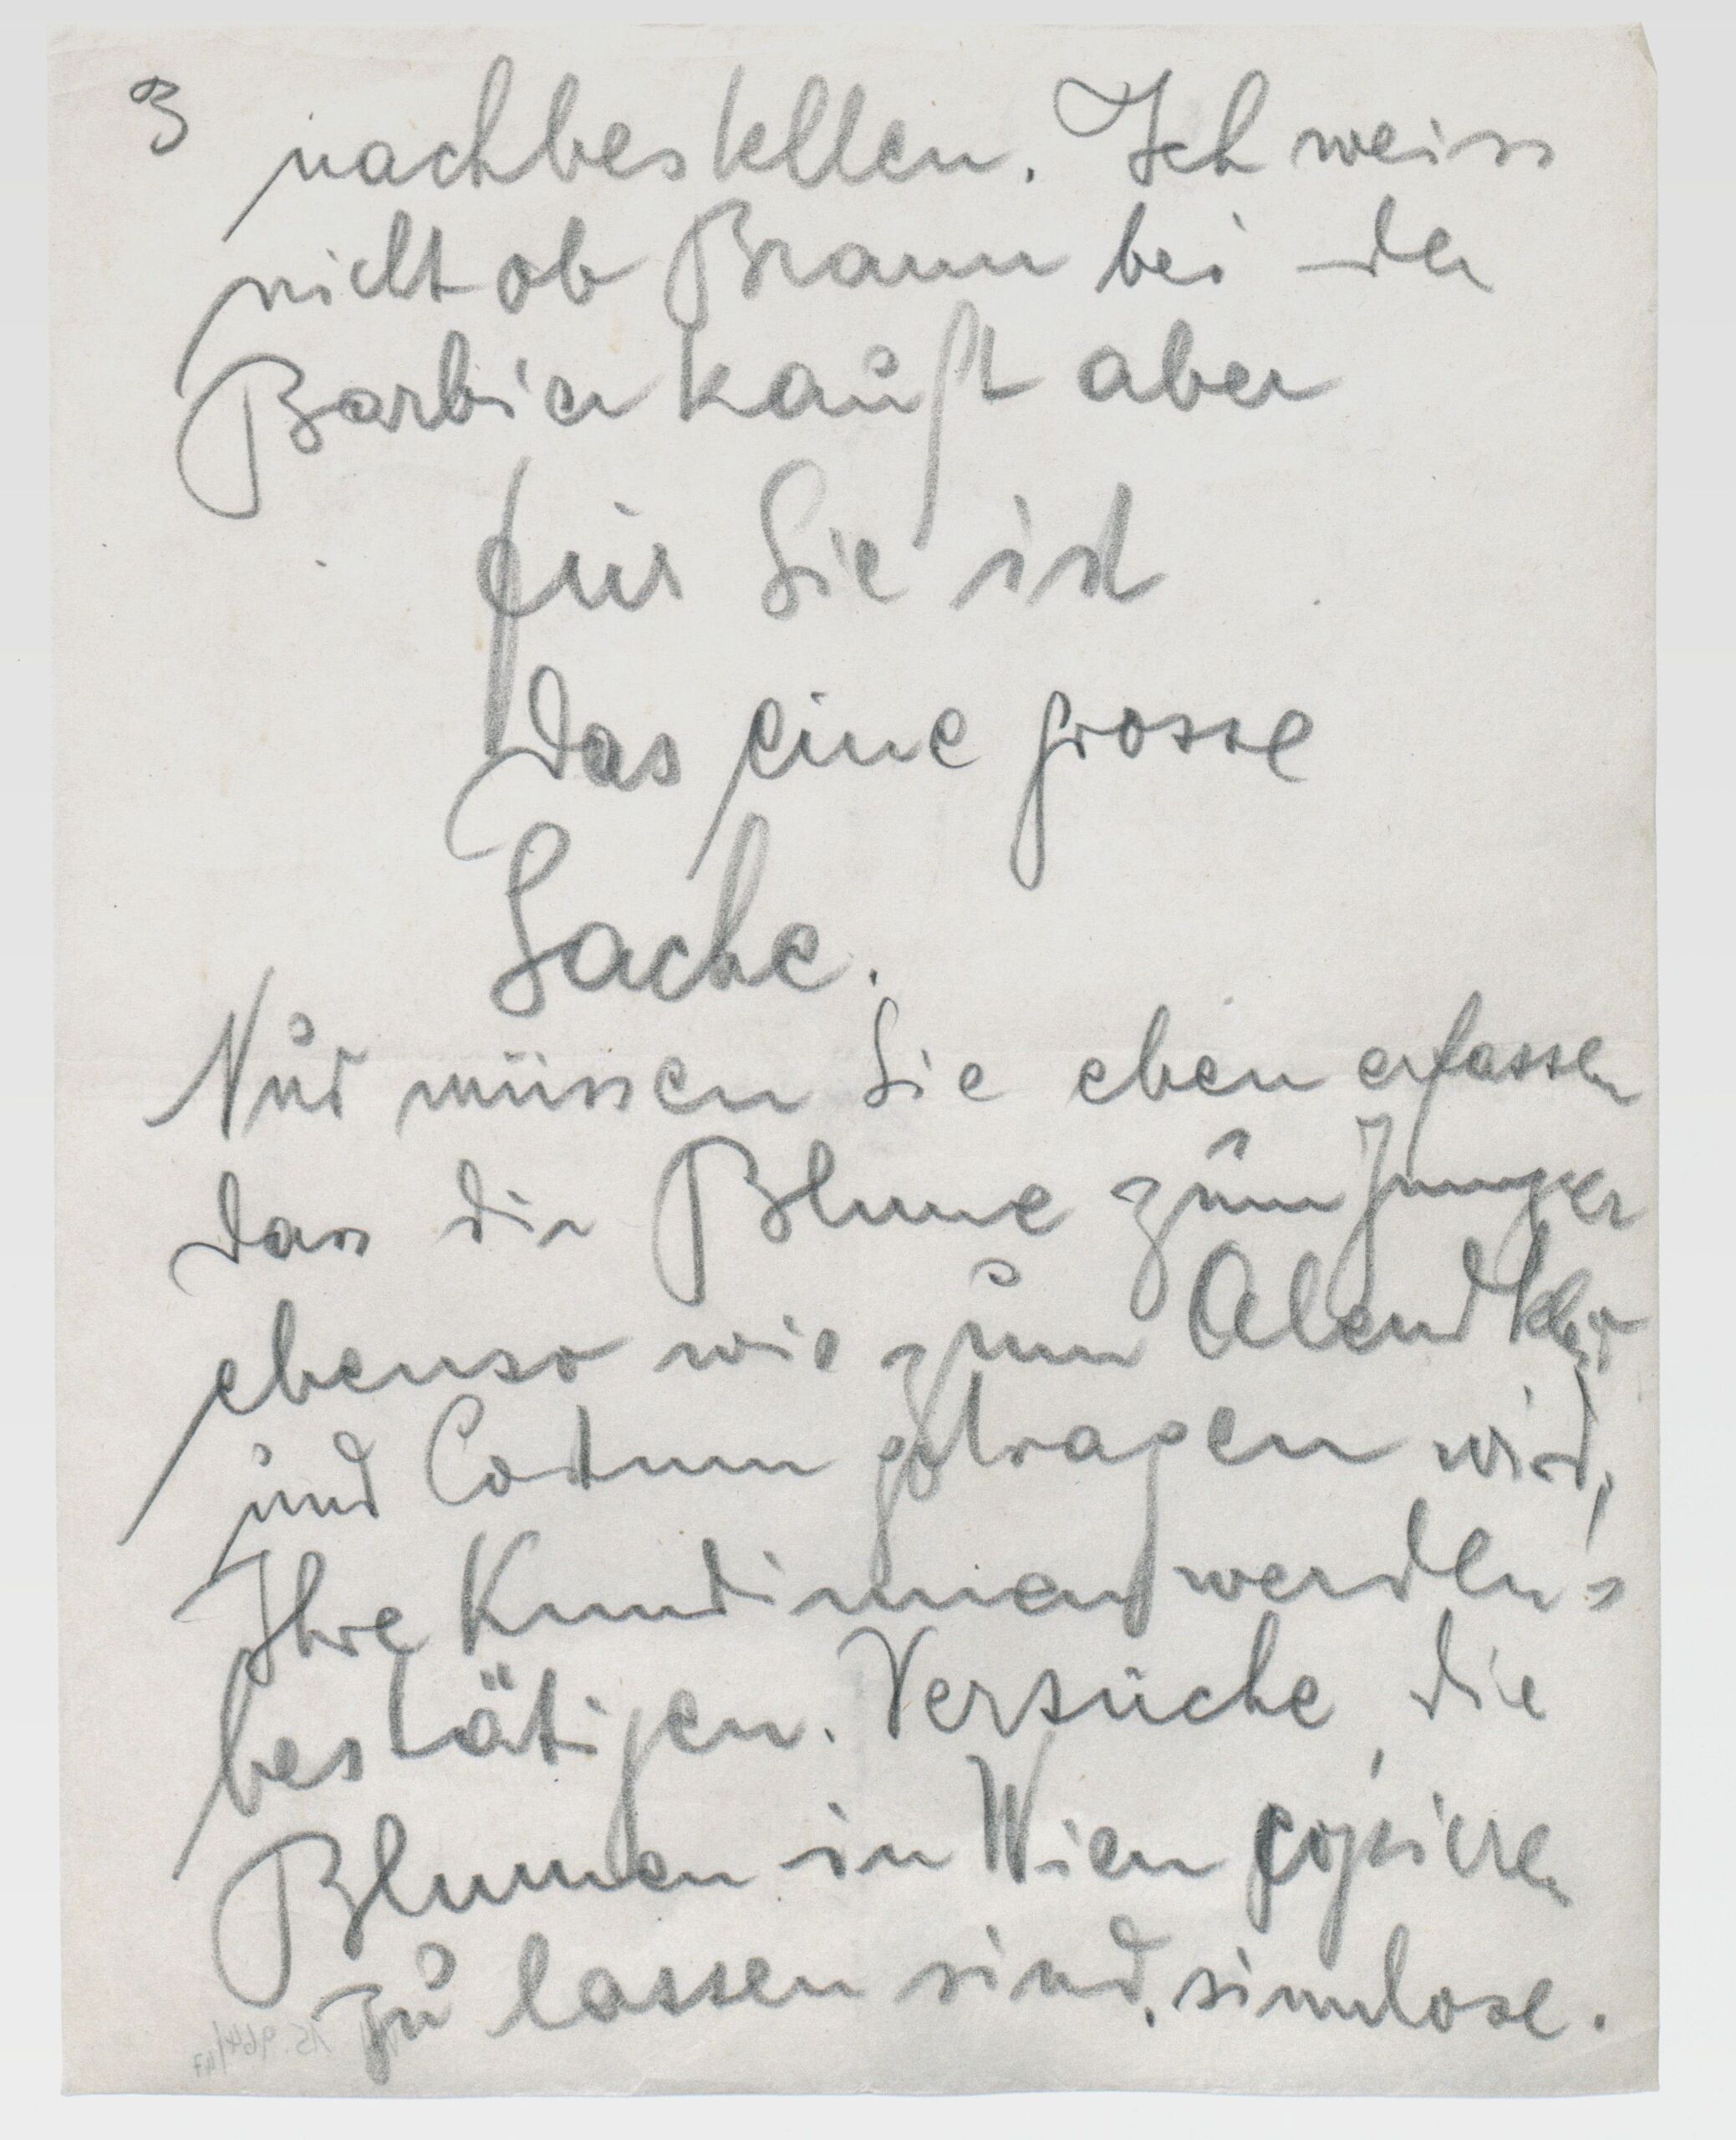 3 nachbestellen. Ich weiss
nicht ob Braun bei der
Barbier kauft aber
für Sie ist
das eine grosse
Sache.
Nur müssen Sie eben erfassen
dass die Blume zum Jumper
ebenso wie zum Abendkleid
und Costum getragen wird,
Ihre Kundinnen werden's
bestätigen. Versuche, die
Blumen in Wien copieren
zu lassen sind, sinnlose.